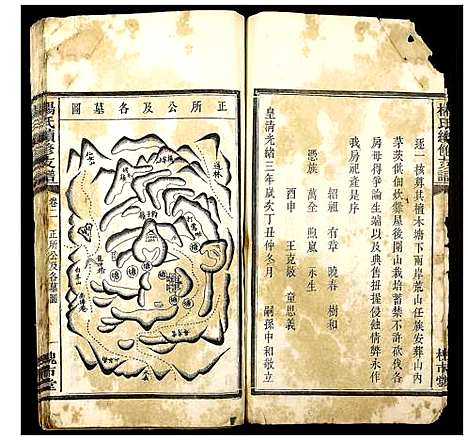 楊氏續修支譜
逐一核葬其檀木塘下兩岸荒山任族安葬山内
茅茨俱佃炊爨屋後圍山栽培蓄禁不許砍伐各
房毋得爭論生端以及典售扭擰侵蝕情弊永作
我房祀產是序
紹祖 有章 曉春 樹和
憑族 萬全 煦嵐 永生
酉申 王克敬 童思義
皇清光緒三年歲次丁丑仲冬月 嗣孫中和敬立
槐市堂
正所公及各墓圖
道林
楊氏續修支譜
卷二 正所公及各墓圖
槐市堂